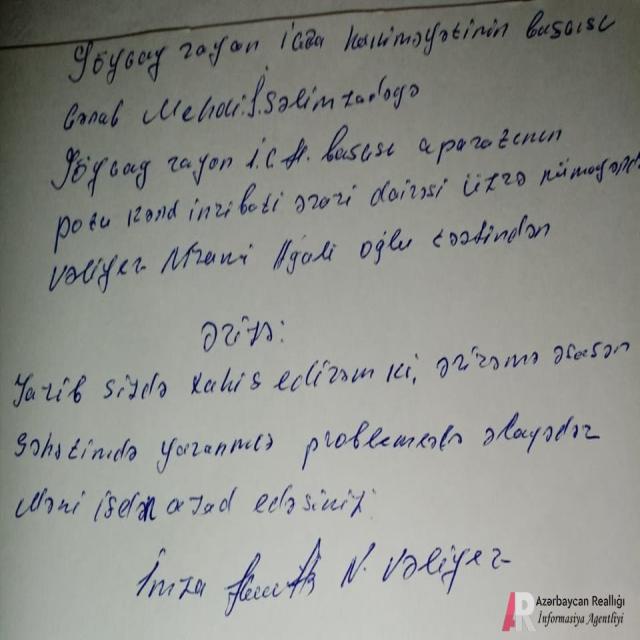 Göygöy rayon İcra hakimiyətinin başçısı
Cənab Mehdi.S.Səlimzadəyə
Göygöy rayon İ.C.H. başçısı aparatının
kənd inzibati ərazi dairəsi üzrə nümayəndə
Vəliyev Ağali oğlu tərəfindən
Ərizə:
Yazıb sizdə xahiş edirəm ki, ərizəmə əsasən
Səhətimdə yaranmıs problemlələ əlaqədar
Məni işdən azad edəsiniz.
İmza N. Vəliyev
Azərbaycan Reallığı
İnformasiya Agentliyi